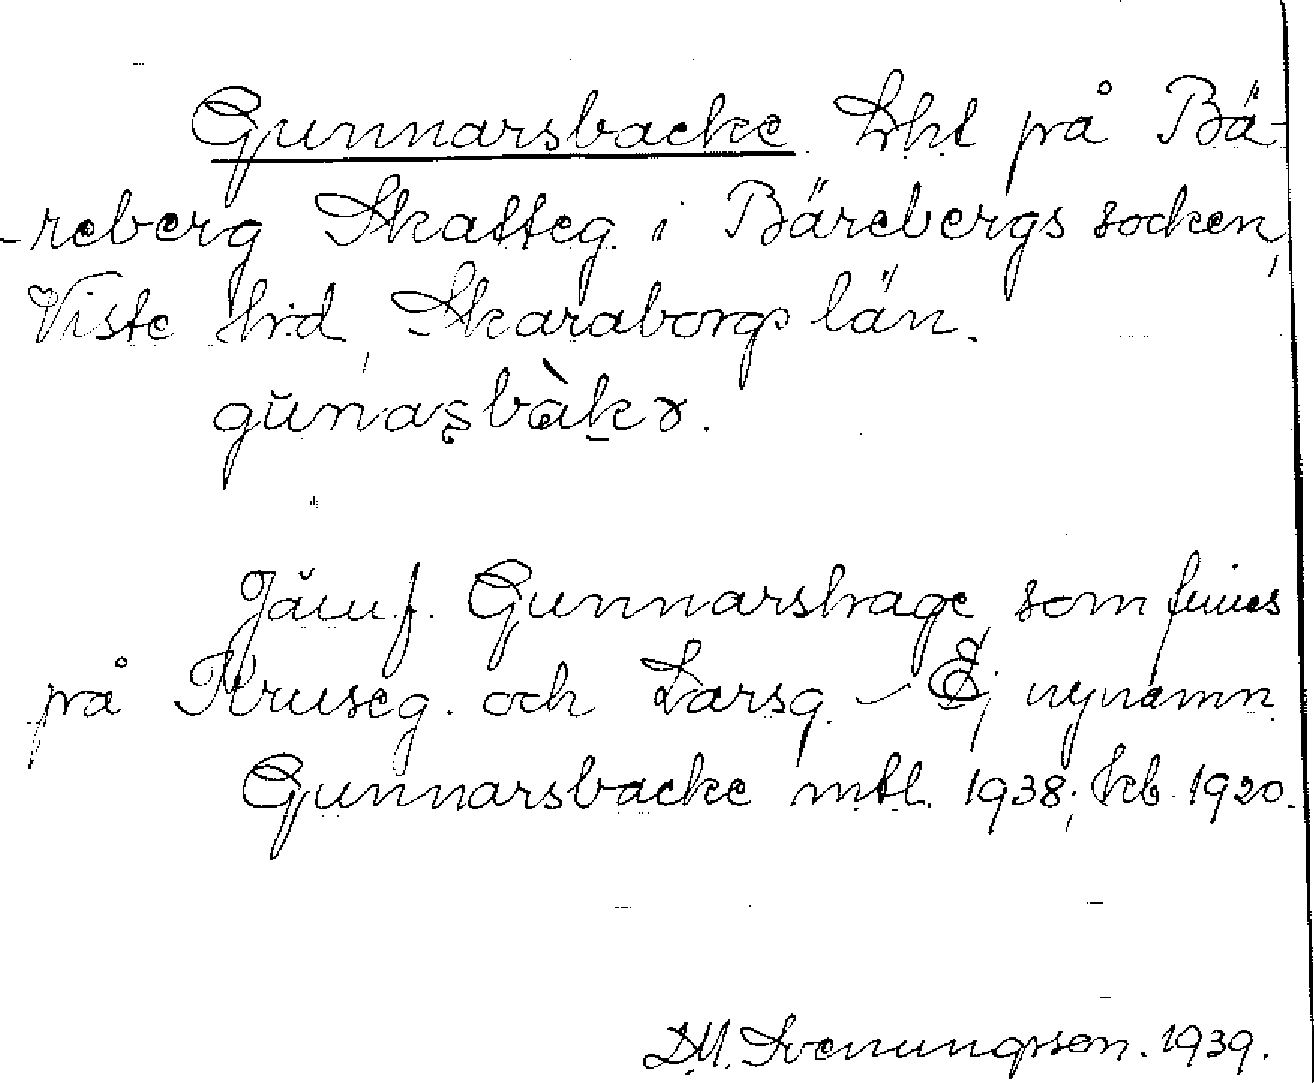 Gunnarsbacke. Lht på Bä-
-reberg Skatteg. i Bärebergs socken,
Viste hrd, Skaraborgs län.
gŭnaʂbàkɤ.
Jämf. Gunnarshage, som finnes
på Kruseg. och Larsg. – Ej nynamn.
Gunnarsbacke mtl. 1938; kb 1920.
D.M. Svenungsson. 1939.